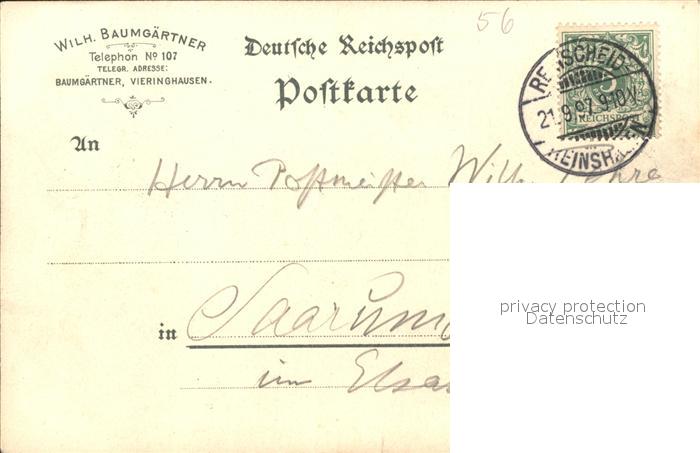 WILH. BAUMGÄRTNER
Telephon Nº 107
TELEGR. ADRESSE:
BAUMGÄRTNER, VIERINGHAUSEN.
56
Deutsche Reichspost
Postkarte
REICHSPOST
REMSCHEID-
21.9.97. 9-10 V.
REINSHAGEN
An
Herrn Postmeister Wilh.
in Saarunion
im Elsass
privacy protection
Datenschutz